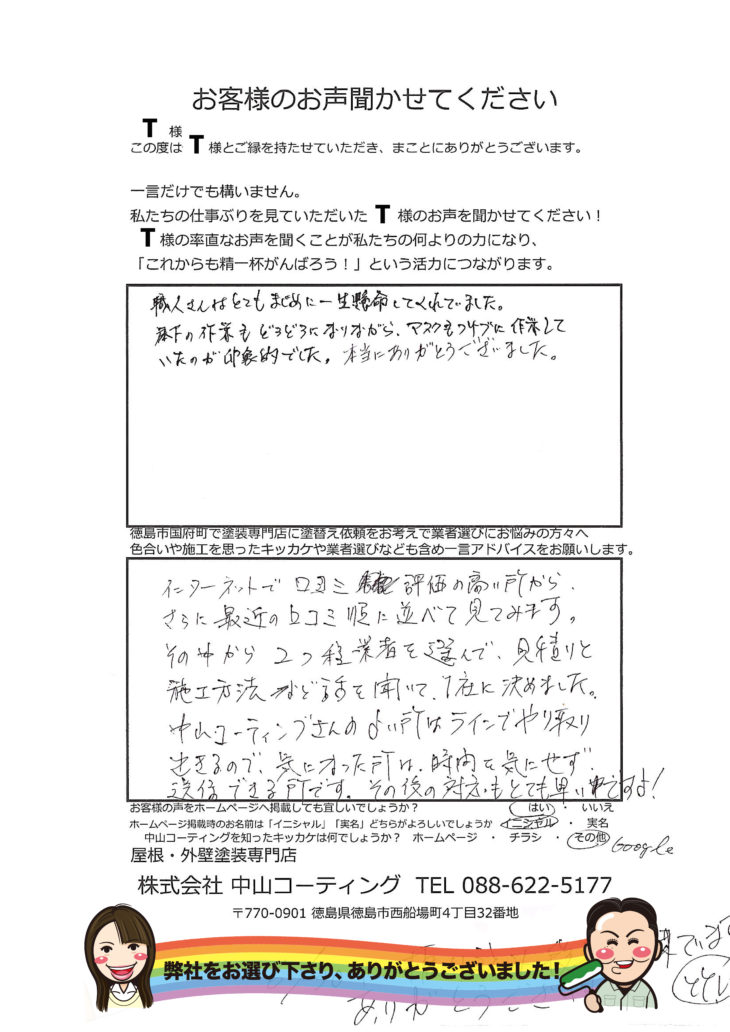 お客様のお声聞かせてください
T 様
この度は T 様とご縁を持たせていただき、まことにありがとうございます。
一言だけでも構いません。
私たちの仕事ぶりを見ていただいた T 様のお声を聞かせてください！
T 様の率直なお声を聞くことが私たちの何よりの力になり、
「これからも精一杯がんばろう！」という活力につながります。
職人さんはとてもまじめに一生懸命してくれていました。
床下の作業もどろどろになりながら、マスクもつけずに作業して
いたのが印象的でした。本当にありがとうございました。
徳島市国府町で塗装専門店に塗替え依頼をお考えで業者選びにお悩みの方々へ
色合いや施工を思ったキッカケや業者選びなども含め一言アドバイスをお願いします。
インターネットで口コミ 評価の高い所から、
さらに最近の口コミ順に並べて見てみます。
その中から2つ程業者を選んで、見積りと
施工方法など話を聞いて、1社に決めました。
中山コーティングさんのよい所はラインでやり取り
出きるので、気になった所は、時間を気にせず、
送信できる所です。その後の対応もとても早いですよ！
お客様の声をホームページへ掲載しても宜しいでしょうか？ はい ・ いいえ
ホームページ掲載時のお名前は「イニシャル」「実名」どちらがよろしいでしょうか イニシャル ・ 実名
中山コーティングを知ったキッカケは何でしょうか？ ホームページ ・ チラシ ・ その他 Google
屋根・外壁塗装専門店
株式会社 中山コーティング TEL 088-622-5177
〒770-0901 徳島県徳島市西船場町4丁目32番地
弊社をお選び下さり、ありがとうございました！
ありがとうござ